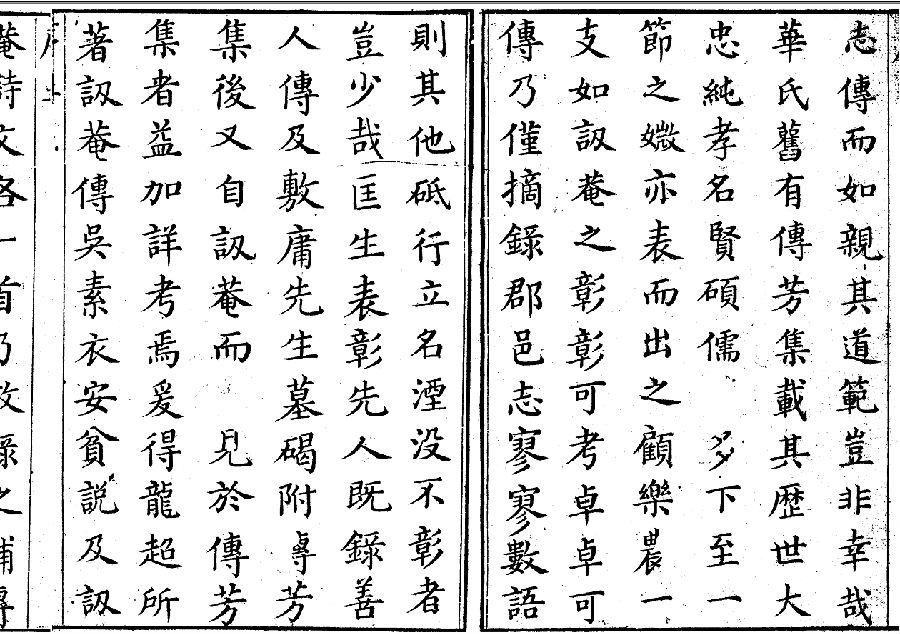 志傳而如親其道範豈非幸哉
華氏舊有傳芳集載其歷世大
忠純孝名賢碩儒 多下至一
節之媺亦表而出之顧樂農一
支如訒菴之彰彰可考卓卓可
傳乃僅摘錄郡邑志寥寥數語
則其他砥行立名湮没不彰者
豈少哉匡生表彰先人既錄善
人傳及敷庸先生墓碣附專芳
集後又自訒菴而 見於傳芳
集者益加詳考焉爰得龍超所
著訒菴傳吳素衣安貧説及訒
菴詩文各一首乃